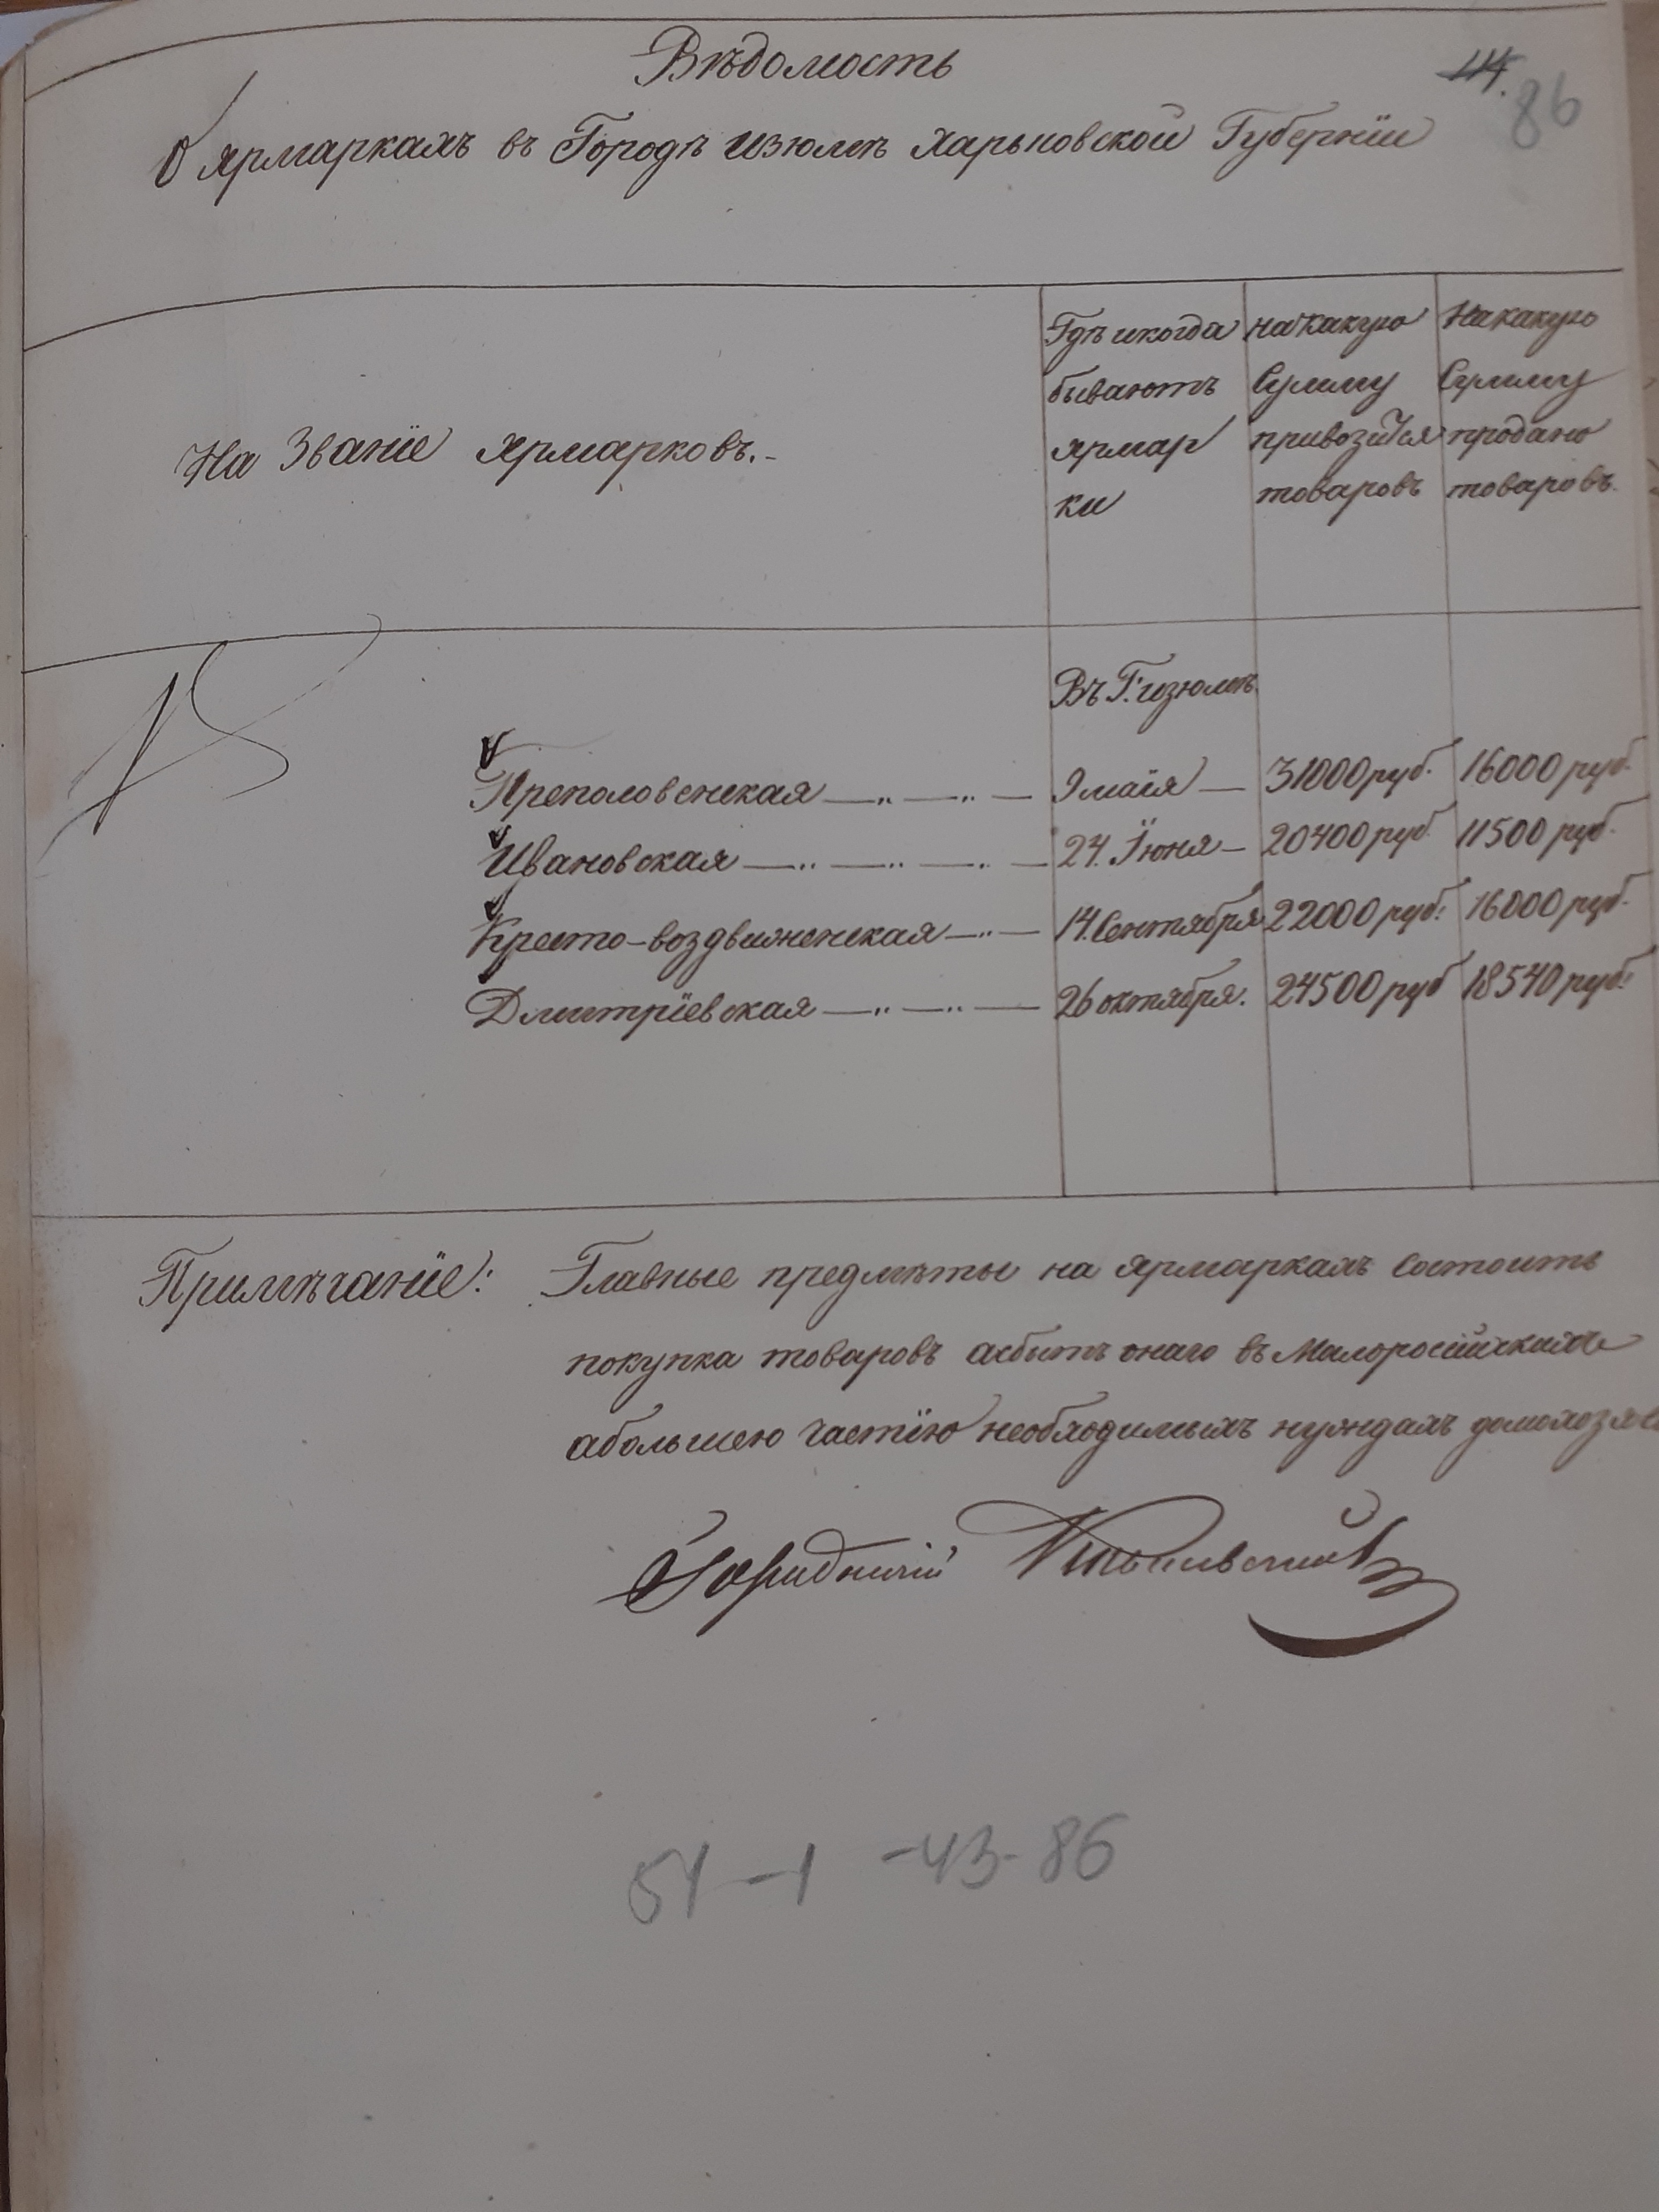 Вѣдомость
114.
86
О ярмаркахъ въ Городѣ Изюмѣ Харьковской Губерніи
На Званіе Ярмарковъ.-
Гдѣ икогда бываютъ ярмар ки
на какую Сумму привозится товаровъ
На какую Сумму продано товаровъ
Въ Г. Изюмѣ
Преполовенская 9 маія 31000 руб. 16000 руб.
Ивановская 24. Іюня 20400 руб. 11500 руб.
Кресто-воздвиженская 14. Сентября 22000 руб. 16000 руб.
Дмитріевская 26 октября. 24500 руб 18540 руб.
Примѣчаніе: Главные предмѣты на ярмаркахъ состоитъ
покупка товаровъ асбытъ онаго въ
абольшею частію необходимымъ нуждамъ
Городничій
51-1-43-86